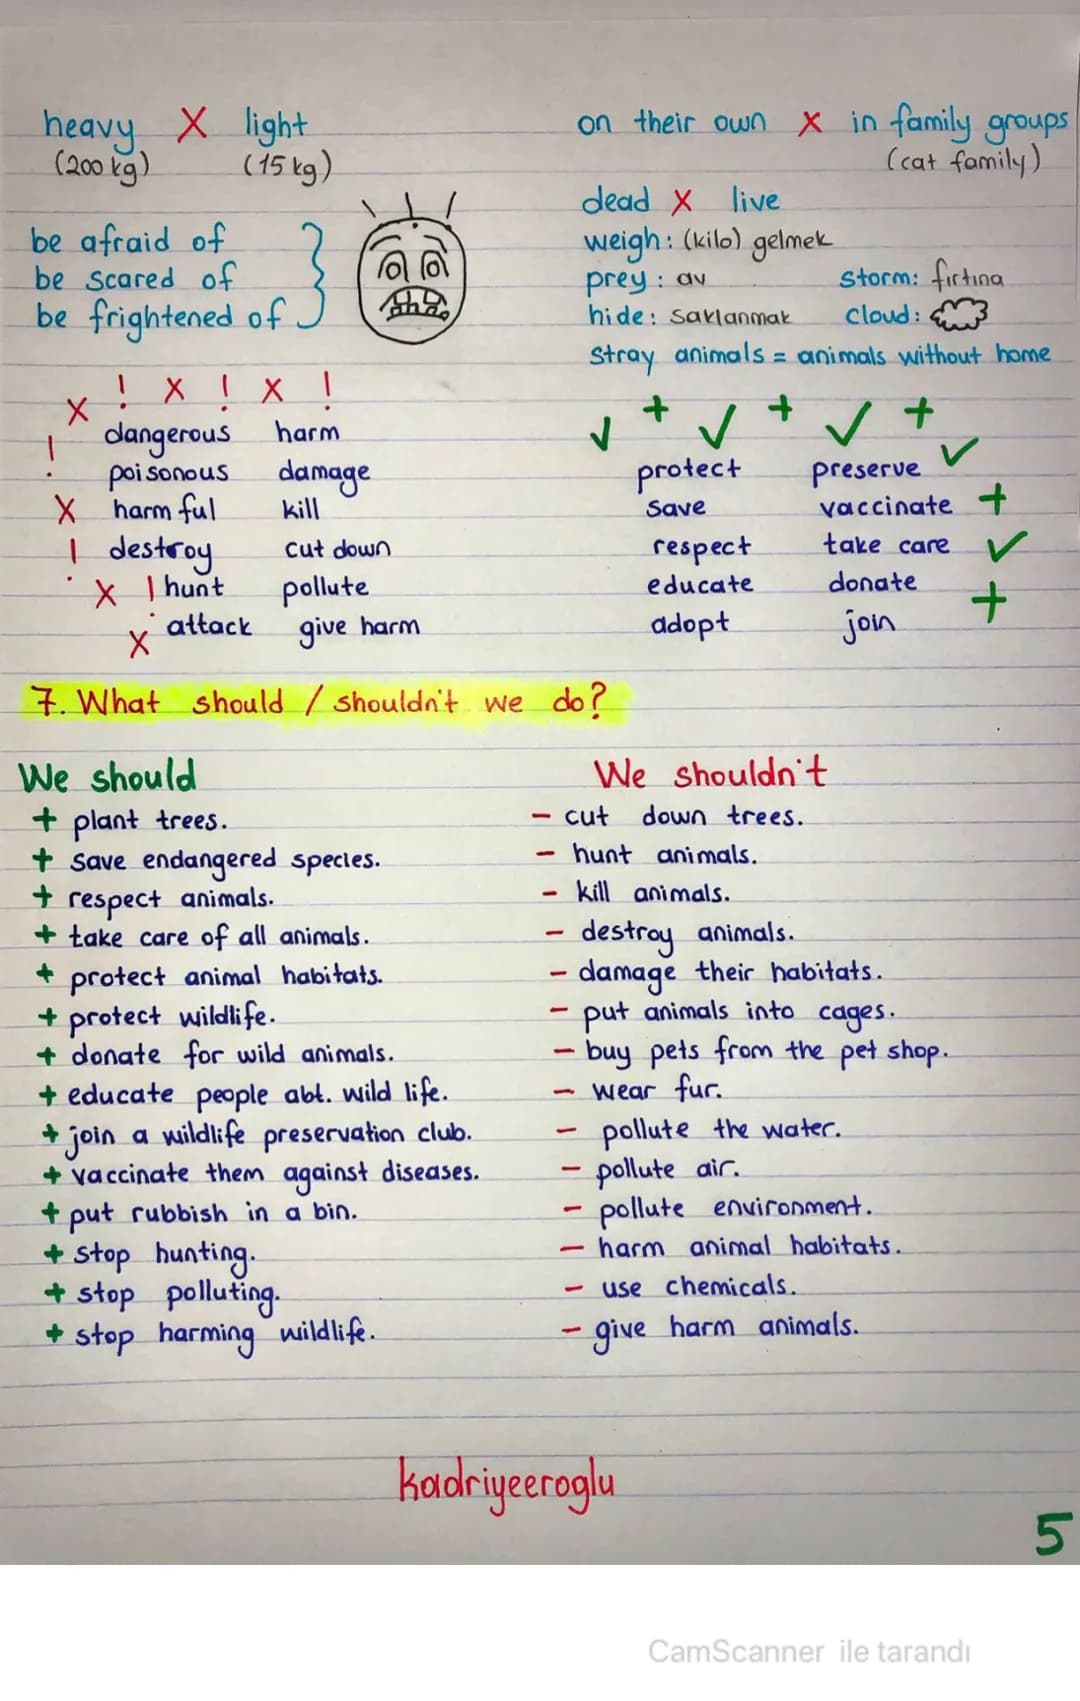 heavy X light
(200 kg) (15 kg)
be afraid of
be scared of
be frightened of
on their own X in family groups
(cat family)
dead X live
weigh: (kilo) gelmek
prey: av storm: fırtına
hide: saklanmak cloud:
Stray animals = animals without home
X ! X ! X !
! dangerous harm
poisonous damage
X harmful kill
! destroy cut down
X ! hunt pollute
X attack give harm
✓ + ✓ + ✓ +
protect preserve ✓
save vaccinate +
respect take care ✓
educate donate +
adopt join
7. What should / shouldn't we do?
We should
+ plant trees.
+ save endangered species.
+ respect animals.
+ take care of all animals.
+ protect animal habitats.
+ protect wildlife.
+ donate for wild animals.
+ educate people abt. wild life.
+ join a wildlife preservation club.
+ vaccinate them against diseases.
+ put rubbish in a bin.
+ stop hunting.
+ stop polluting.
+ stop harming wildlife.
We shouldn't
- cut down trees.
- hunt animals.
- kill animals.
- destroy animals.
- damage their habitats.
- put animals into cages.
- buy pets from the pet shop.
- wear fur.
- pollute the water.
- pollute air.
- pollute environment.
- harm animal habitats.
- use chemicals.
- give harm animals.
kadriyeeroglu
5
CamScanner ile tarandı